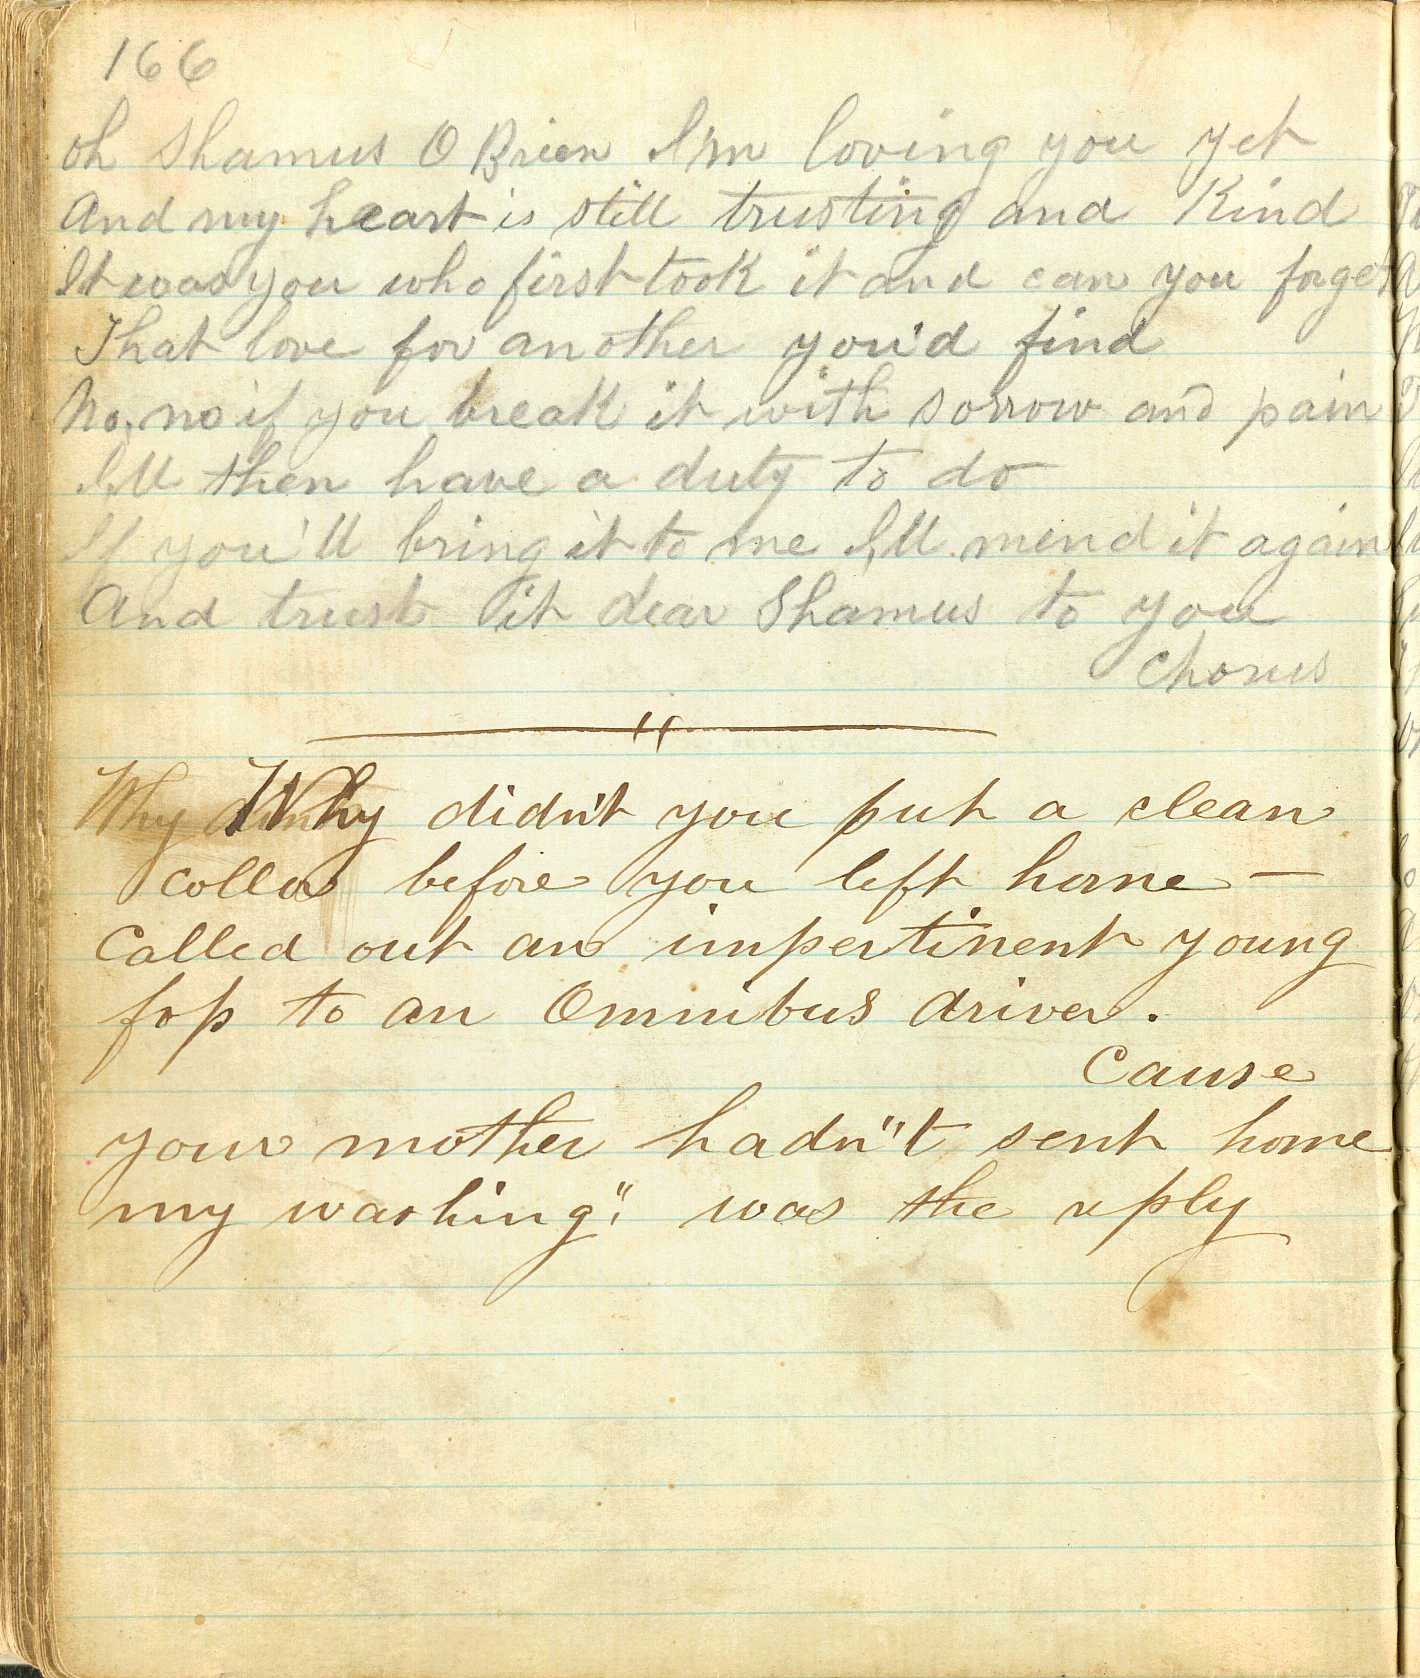 166
Oh Shamus O Brien I'm loving you yet
And my heart is still trusting and Kind
It was you who first took it and can you forget
That love for another you'd find
No, no if you break it with sorrow and pain
I,ll then have a duty to do
If you'll bring it to me I,ll mend it again
And trust it dear Shamus to you
Chorus
Why Why didn't you put a clean
collar before you left home —
Called out an impertinent young
fop to an Omnibus driver.
Cause
your mother hadn"t sent home
my washing". was the reply